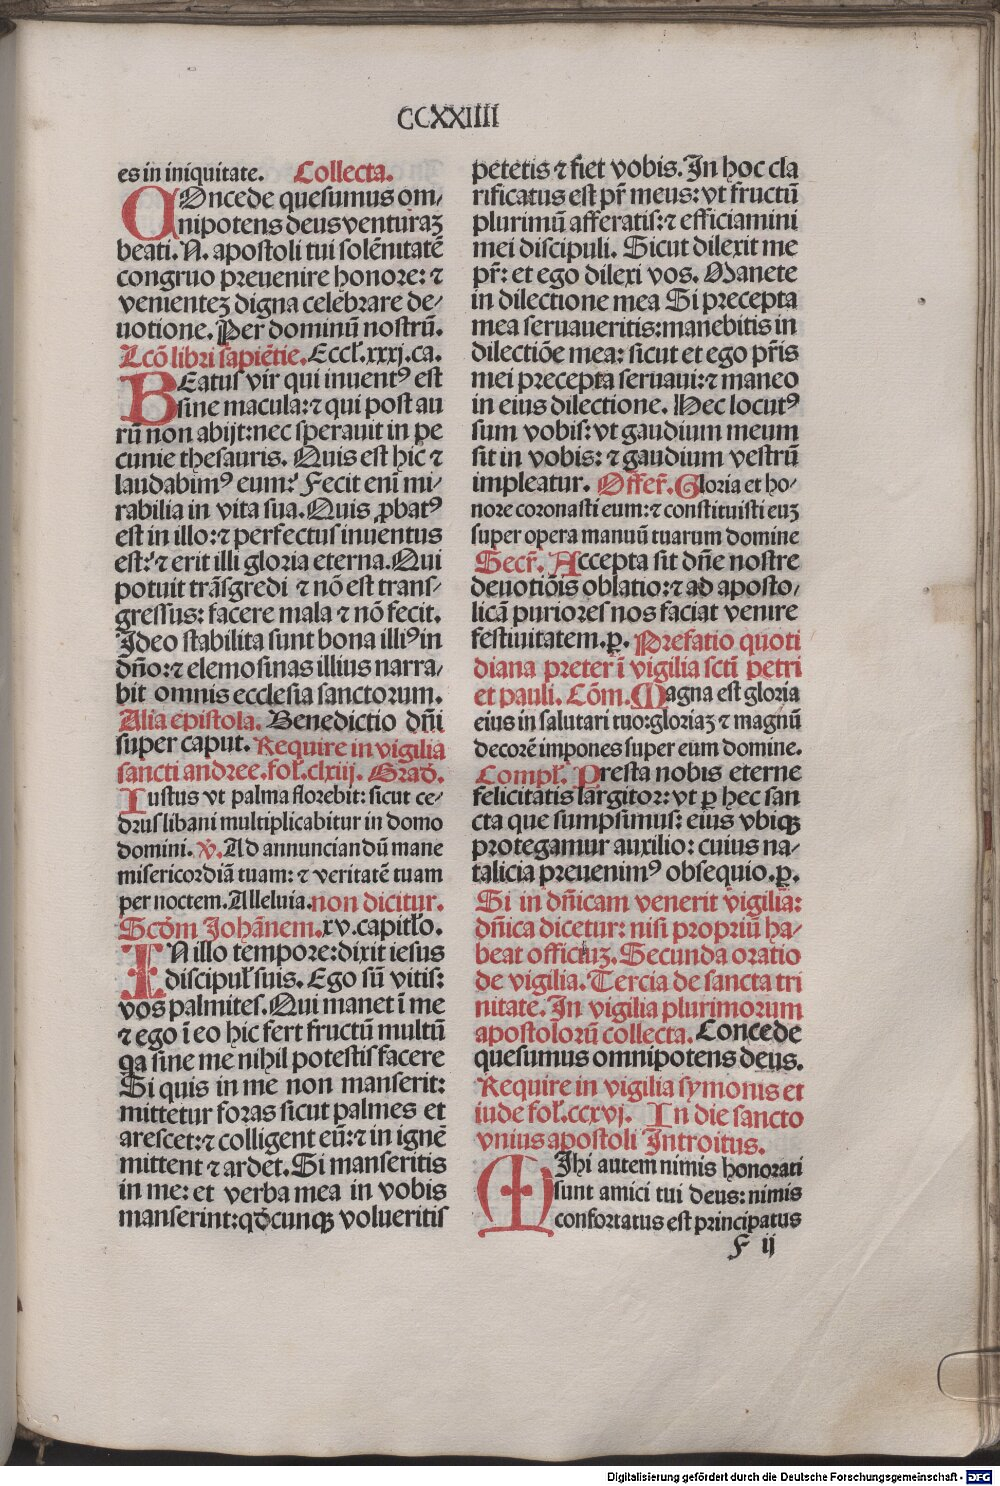 CCXXIIII
es in iniquitate. Collecta.
COncede quesumus om-
nipotens deus venturaꝫ
beati. N. apostoli tui solēnitatē
congruo preuenire honore: ⁊
venienteꝫ digna celebrare de-
uotione. Per dominū nostrū.
Lcō libri sapiētie. Eccl̄. xxxj. ca.
BEatus vir qui inuentꝰ est
sine macula: ⁊ qui post au
rū non abijt: nec sperauit in pe
cunie thesauris. Quis est hic ⁊
laudabimꝰ eum: Fecit enī mi-
rabilia in vita sua. Quis ꝓbatꝰ
est in illo: ⁊ perfectus inuentus
est: ⁊ erit illi gloria eterna. Qui
potuit trāsgredi ⁊ nō est trans-
gressus: facere mala ⁊ nō fecit.
Ideo stabilita sunt bona illiꝰ in
dn̄o: ⁊ elemosinas illius narra-
bit omnis ecclesia sanctorum.
Alia epistola. Benedictio dn̄i
super caput. Require in vigilia
sancti andree. fol̄. clxiij. Grad̄.
Iustus vt palma florebit: sicut ce-
drus libani multiplicabitur in domo
domini. ℣. Ad annunciandū mane
misericordiā tuam: ⁊ veritatē tuam
per noctem. Alleluia. non dicitur.
Scd̄m Johānem. xv. capitl̄o.
IN illo tempore: dixit iesus
discipul̄ suis. Ego sū vitis:
vos palmites. Qui manet ī me
⁊ ego ī eo hic fert fructū multū
qa sine me nihil potestis facere
Si quis in me non manserit:
mittetur foras sicut palmes et
arescet: ⁊ colligent eū: ⁊ in ignē
mittent ⁊ ardet. Si manseritis
in me: et verba mea in vobis
manserint: qd̄cunqꝫ volueritis
petetis ⁊ fiet vobis. In hoc cla
rificatus est pr̄ meus: vt fructū
plurimū afferatis: ⁊ efficiamini
mei discipuli. Sicut dilexit me
pr̄: et ego dilexi vos. Manete
in dilectione mea Si precepta
mea seruaueritis: manebitis in
dilectiōe mea: sicut et ego pr̄is
mei precepta seruaui: ⁊ maneo
in eius dilectione. Hec locutꝰ
sum vobis: vt gaudium meum
sit in vobis: ⁊ gaudium vestrū
impleatur. Offer̄. Gloria et ho-
nore coronasti eum: ⁊ constituisti euꝫ
super opera manuū tuarum domine
Secr̄. Accepta sit dn̄e nostre
deuotiōis oblatio: ⁊ ad aposto-
licā puriores nos faciat venire
festiuitatem. ꝑ. Prefatio quoti
diana preter ī vigilia scti petri
et pauli. Cōm. Magna est gloria
eius in salutari tuo: gloriaꝫ ⁊ magnū
decorē impones super eum domine.
Compl̄. Presta nobis eterne
felicitatis largitor: vt ꝑ hec san
cta que sumpsimus: eius vbiqꝫ
protegamur auxilio: cuius na-
talicia preuenimꝰ obsequio. ꝑ.
Si in dn̄icam venerit vigilia:
dn̄ica dicetur: nisi propriū ha-
beat officiuꝫ. Secunda oratio
de vigilia. Tercia de sancta tri
nitate. In vigilia plurimorum
apostolorū collecta. Concede
quesumus omnipotens deus.
Require in vigilia symonis et
iude fol̄. ccxvj. In die sancto
vnius apostoli Introitus.
MIhi autem nimis honorati
sunt amici tui deus: nimis
confortatus est principatus
F ij
Digitalisierung gefördert durch die Deutsche Forschungsgemeinschaft - DFG